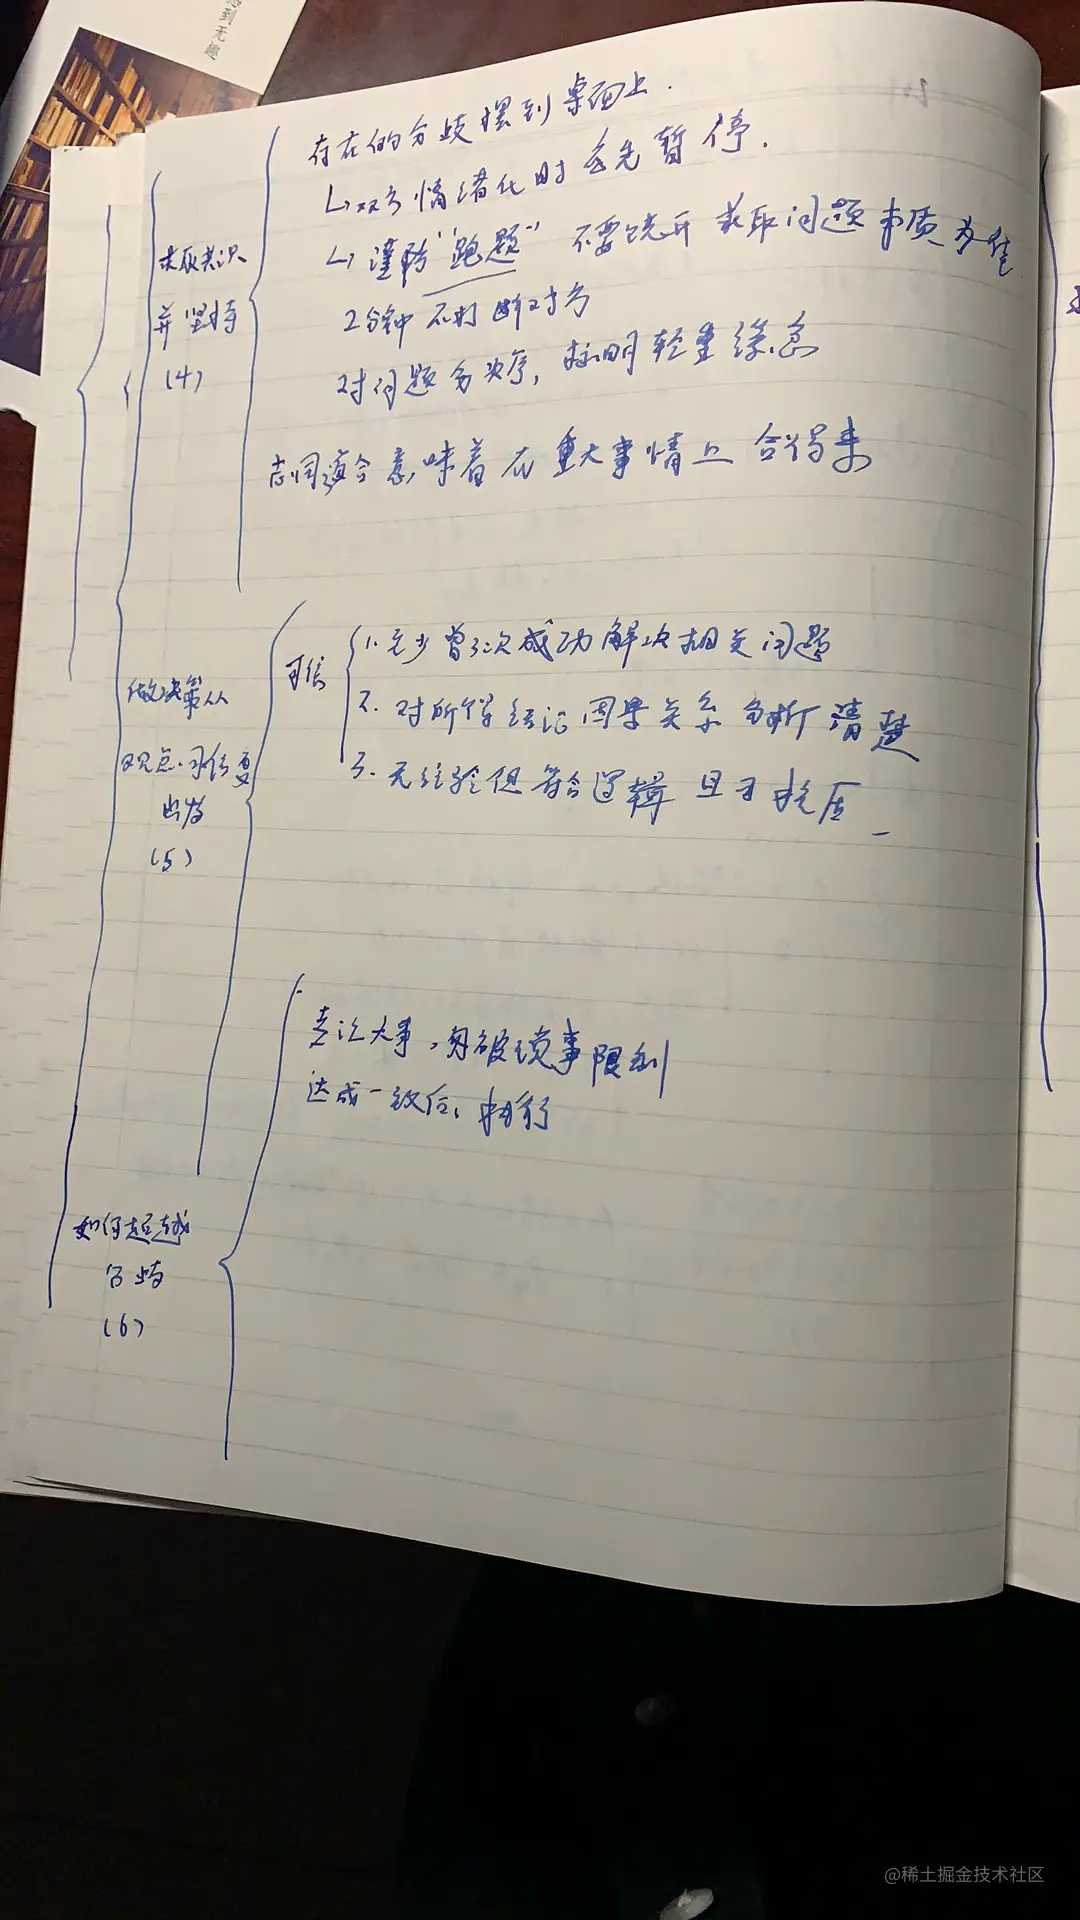 感到无趣
存在的分歧摆到桌面上.
↳双方情绪化时 应先暂停.
↳谨防"跑题" 不要绕开 求取问题本质为佳
2分钟不打断对方
对问题分次序, 标明轻重缓急
志同道合意味着在重大事情上合得来
求取共识
并坚持
(4)
可信
1. 至少曾3次成功解决相关问题
2. 对所得结论因果关系分析清楚
3. 无经验但符合逻辑且可抗压
做决策从
观点可信度
出发
(5)
言论大事,勿被琐事限制
达成一致后,执行
如何超越
分歧
(6)
@稀土掘金技术社区